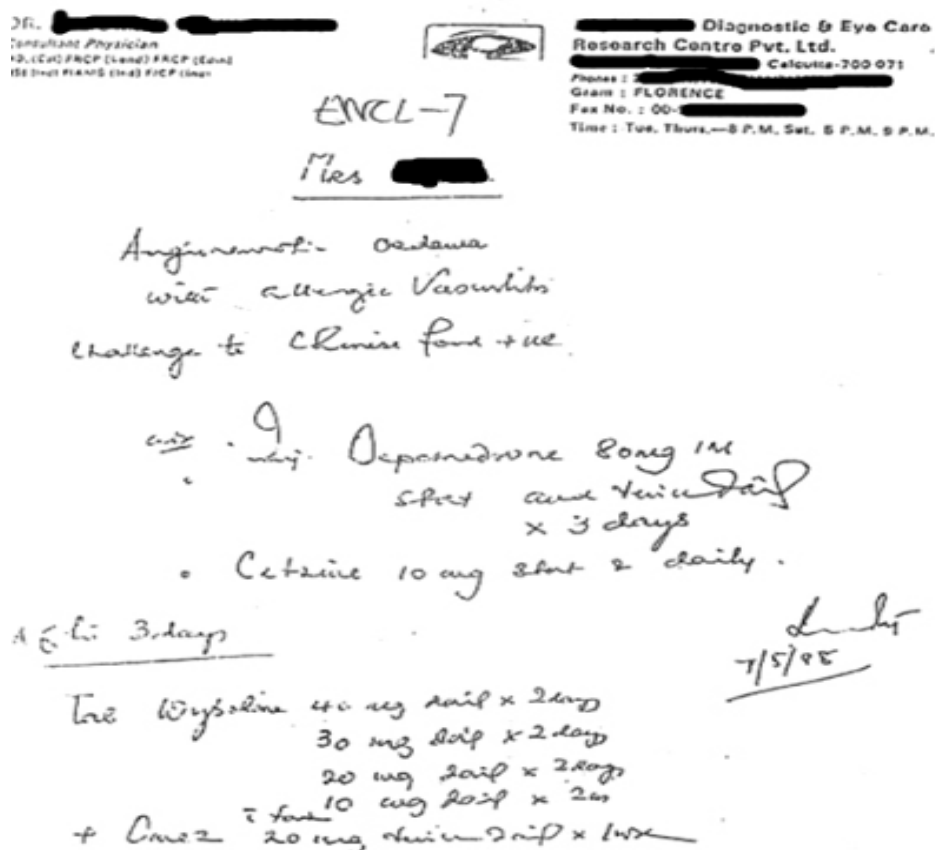 DR.
Consultant Physician
Diagnostic & Eye Care
Research Centre Pvt. Ltd.
Calcutta-700 071
Phones :
Gram : FLORENCE
Fax No. : 00-
Time : Tue, Thurs.—8 P.M. Sat. 5 P.M. 9 P.M.
ENCL-7
Mrs
oedema
with allergic Vasculitis
Challenge to Chinese food +ve
inj. Depomedrone 80mg IM
stat and twice daily
x 3 days
Cetzine 10 mg stat & daily.
After 3 days
7/5/98
Wysolone 40 mg daily x 2 days
30 mg daily x 2 days
20 mg daily x 2 days
10 mg daily x
+ 20 mg twice daily x